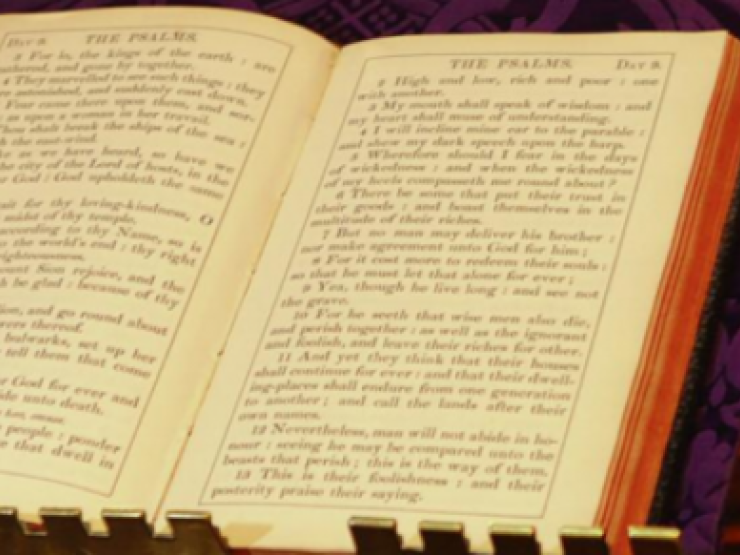 Day 9.
THE PSALMS.
3 For lo, the kings of the earth : are
gathered, and gone by together.
4 They marvelled to see such things : they
astonished, and suddenly cast down.
Fear came there upon them, and sor-
as upon a woman in her travail.
Thou shalt break the ships of the sea :
the east-wind.
as we have heard, so have we
the city of the Lord of hosts, in the
God : God upholdeth the same
for thy loving-kindness, O
midst of thy temple.
according to thy Name, so is
the world's end : thy right
righteousness.
Sion rejoice, and the
be glad : because of thy
and go round about
thereof.
bulwarks, set up her
tell them that come
God for ever and
unto death.
people : ponder
that dwell in
THE PSALMS.
Day 9.
2 High and low, rich and poor : one
with another.
3 My mouth shall speak of wisdom : and
my heart shall muse of understanding.
4 I will incline mine ear to the parable :
and shew my dark speech upon the harp.
5 Wherefore should I fear in the days
of wickedness : and when the wickedness
of my heels compasseth me round about?
6 There be some that put their trust in
their goods : and boast themselves in the
multitude of their riches.
7 But no man may deliver his brother :
nor make agreement unto God for him;
8 For it cost more to redeem their souls :
so that he must let that alone for ever;
9 Yea, though he live long : and see not
the grave.
10 For he seeth that wise men also die,
and perish together : as well as the ignorant
and foolish, and leave their riches for other.
11 And yet they think that their houses
shall continue for ever : and that their dwell-
ing-places shall endure from one generation
to another; and call the lands after their
own names.
12 Nevertheless, man will not abide in ho-
nour : seeing he may be compared unto the
beasts that perish; this is the way of them.
13 This is their foolishness : and their
posterity praise their saying.